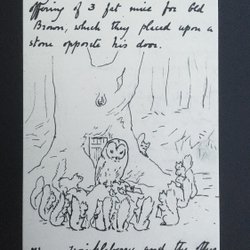 offering of 3 fat mice for Old
Brown, which they placed upon a
stone opposite his door.
and the other